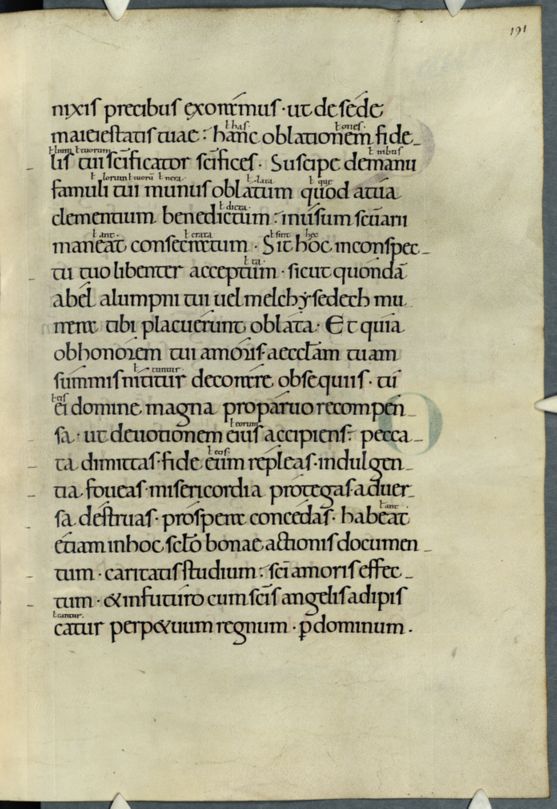 191
nixis precibus exoramus · ut de sede
maieiestatis tuae : hanc oblationem fide_
ł has ł ones
lis tui scificator scifices . Suscipe demanu
ł lium ł tuorum ł nibus
famuli tui munus oblatum quod atua
ł lorum ł uorū ł nera ł lata ł que
clementium benedictum : inusum scuarii
ł dicta
maneat consecratum . Sit hoc inconspec_
ł ant ł crata ł sint hec
tu tuo libenter acceptum · sicut quondā
ł ta
abel alumpni tui uel melchysedech mu
nera tibi placuerunt oblata · Et quia
obhonorem tui amoris aecclam tuam
summis nititur decorare obsequiis · tu
ł tuntur
ei domine magna proparuo recompen_
ł eis
sa · ut deuotionem eius accipiens : pecca_
ł eorum
ta dimittas · fide eum repleas · indulgen_
ł eos
tia foueas · misericordia protegas · aduer_
sa destruas · prospera concedas · habeat
ł ant
etiam inhoc sclo bonae actionis documen_
tum · caritatis studium : sci amoris effec_
tum · & infuturo cum scis angelis adipis
catur perp&uum regnum · p dominum .
ł cantur